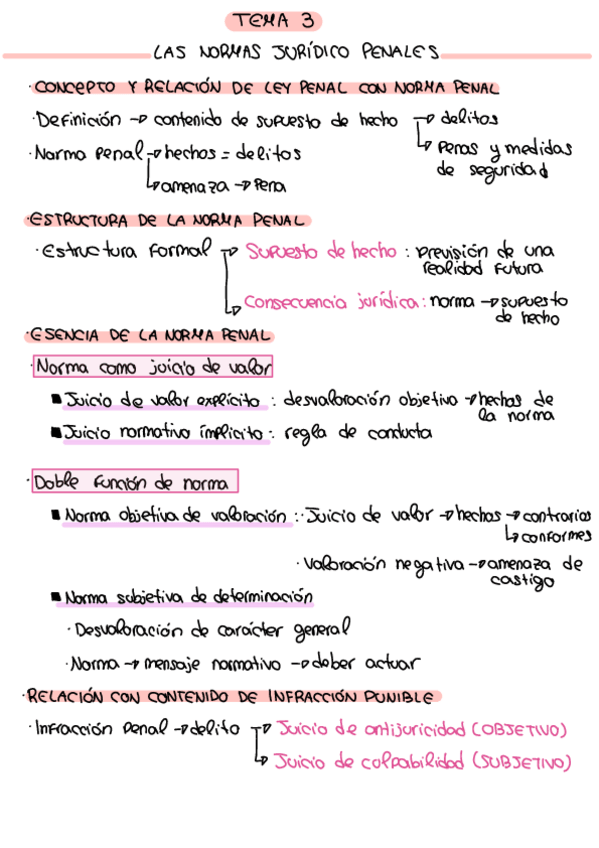 TEMA 3
LAS NORMAS JURÍDICO PENALES
· CONCEPTO Y RELACIÓN DE LEY PENAL CON NORMA PENAL
· Definición → contenido de supuesto de hecho → delitos
↳ Penas y medidas
de seguridad
· Norma Penal → hechos = delitos
↳ amenaza → Pena
· ESTRUCTURA DE LA NORMA PENAL
· Estructura Formal → Supuesto de hecho : previsión de una
realidad futura
↳ Consecuencia jurídica : norma → supuesto
de hecho
· ESENCIA DE LA NORMA PENAL
· Norma como juicio de valor
■ Juicio de valor explícito : desvaloración objetivo → hechos de
la norma
■ Juicio normativo implícito : regla de conducta
· Doble función de norma
■ Norma objetiva de valoración : · Juicio de valor → hechos → contrarios
↳ conformes
· Valoración negativa → amenaza de
castigo
■ Norma subjetiva de determinación
· Desvaloración de carácter general
· Norma → mensaje normativo → deber actuar
· RELACIÓN CON CONTENIDO DE INFRACCIÓN PUNIBLE
· Infracción penal → delito → Juicio de antijuricidad (OBJETIVO)
↳ Juicio de culpabilidad (SUBJETIVO)